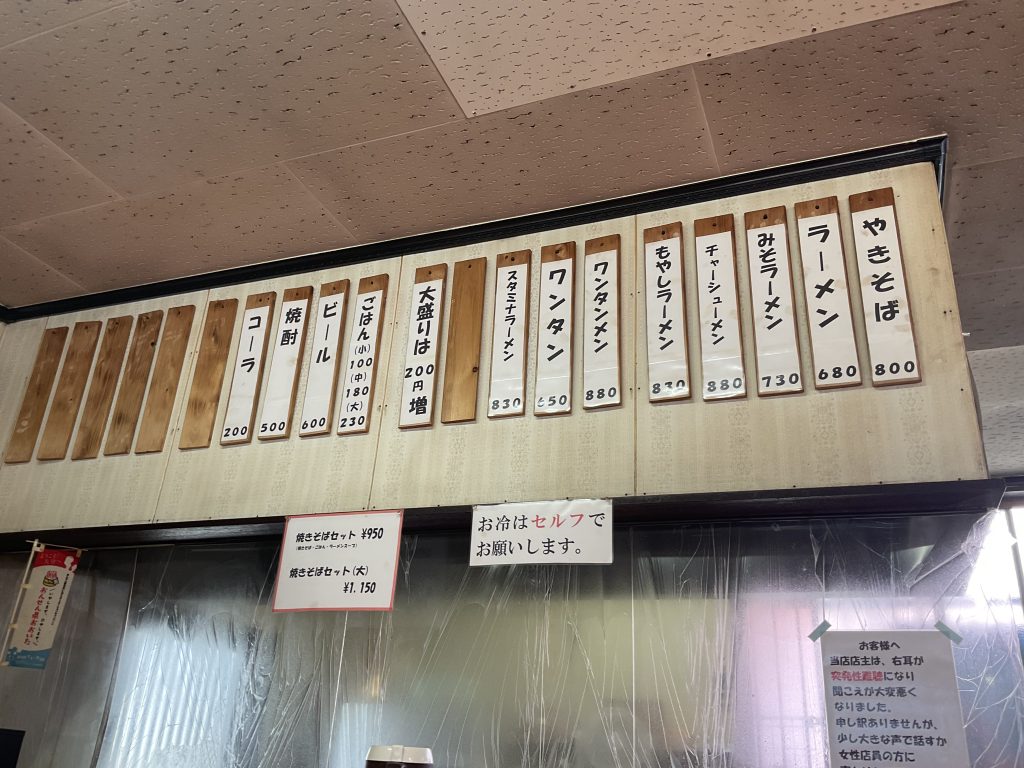 やきそば 800
ラーメン 680
みそラーメン 730
チャーシューメン 880
もやしラーメン 830
ワンタンメン 880
ワンタン 650
スタミナラーメン 830
大盛りは 200円 増
ごはん(小)100(中)180(大)230
ビール 600
焼酎 500
コーラ 200
焼きそばセット ¥950
(焼きそば・ごはん・ラーメンスープ)
焼きそばセット(大)
¥1.150
お冷はセルフで
お願いします。
おんせん県おおいた
お客様へ
当店店主は、右耳が
突発性難聴になり
聞こえが大変悪く
なりました。
申し訳ありませんが、
少し大きな声で話すか
女性店員の方に